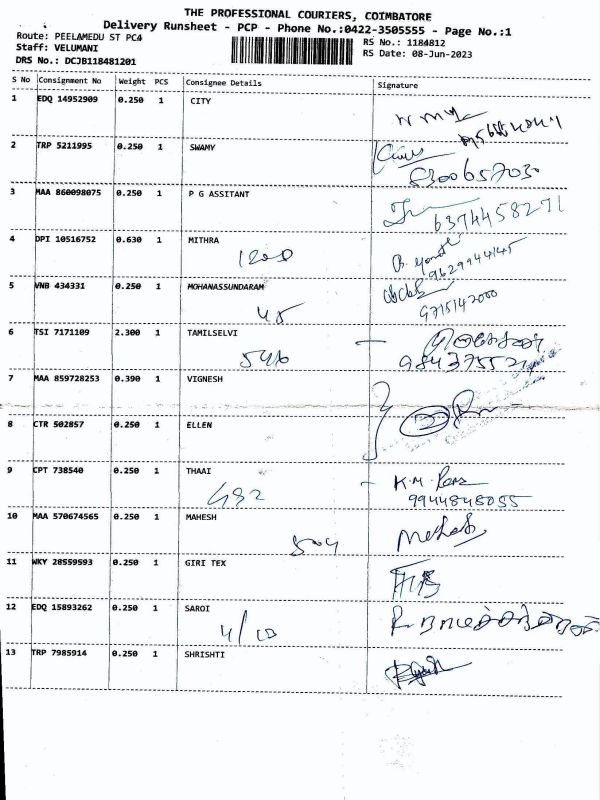 THE PROFESSIONAL COURIERS, COIMBATORE
Delivery Runsheet - PCP - Phone No.:0422-3505555 - Page No.:1
Route: PEELAMEDU ST PC4
Staff: VELUMANI
DRS No.: DCJB118481201
RS No.: 1184812
RS Date: 08-Jun-2023
S No Consignment No Weight PCS Consignee Details Signature
1 EDQ 14952909 0.250 1 CITY
2 TRP 5211995 0.250 1 SWAMY
8300657030
3 MAA 860098075 0.250 1 P G ASSITANT
6374458271
4 DPI 10516752 0.630 1 MITHRA
1200 9629944145
5 VNB 434331 0.250 1 MOHANASSUNDARAM
45 9715142000
6 TSI 7171109 2.300 1 TAMILSELVI
7 MAA 859728253 0.390 1 VIGNESH
8 CTR 502857 0.250 1 ELLEN
9 CPT 738540 0.250 1 THAAI
K.M.
9944848055
10 MAA 570674565 0.250 1 MAHESH
504 Mahesh
11 WKY 28559593 0.250 1 GIRI TEX
12 EDQ 15893262 0.250 1 SAROI
4/10
13 TRP 7985914 0.250 1 SHRISHTI